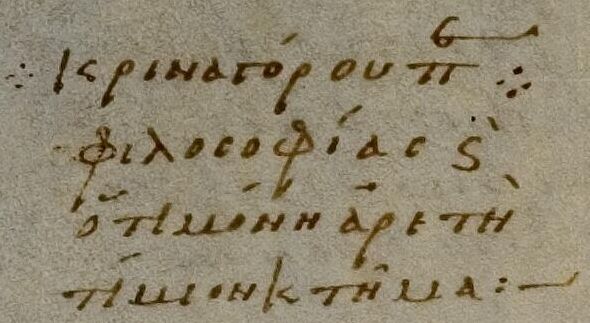 ⁖ κριναγόρου πε ⁘
φιλοσοφίας ϛ̀
ὅτι μόνη ἀρετὴ
τίμιον κτῆμα:—